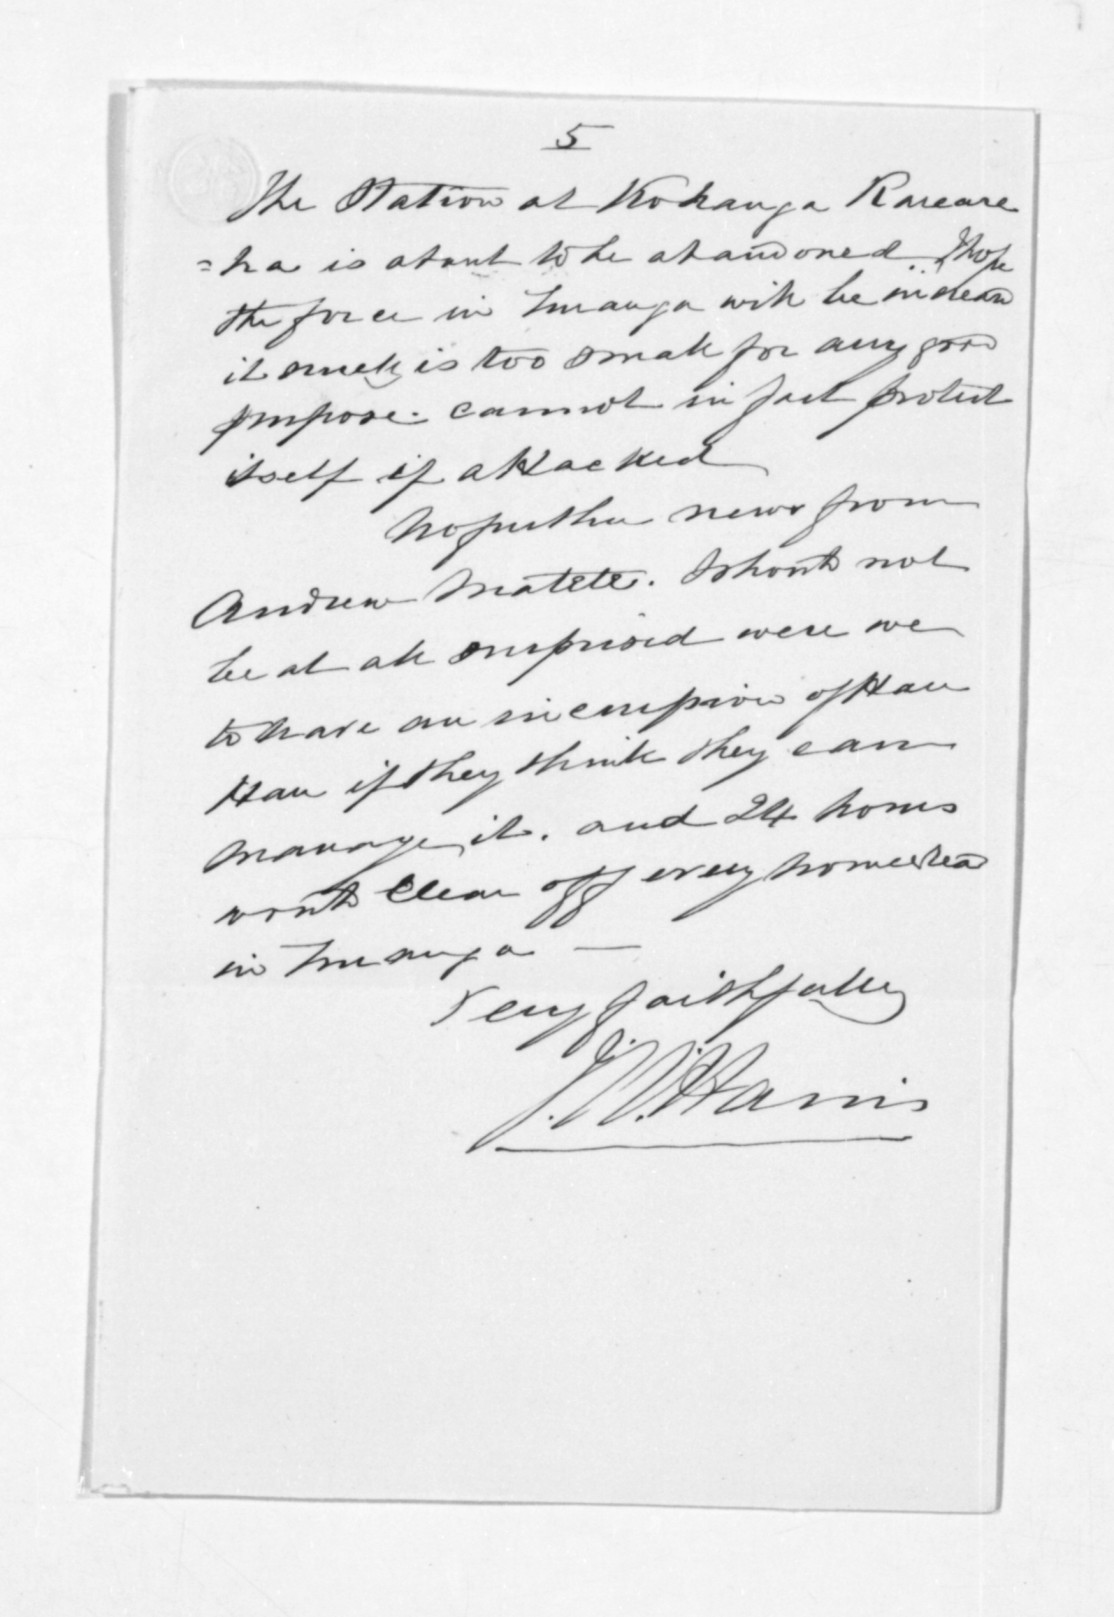 5
The Station at Kohanga Kareare
=ha is about to be abandoned. I hope
the force in Turanga will be increased
it surely is too small for any good
purpose. cannot in fact protect
itself if attacked
No further news from
Andrew Matete. I should not
be at all surprised were we
to have an incursion of Hau
Hau if they think they can
manage it. and 24 hours
would clear off every homestead
in Turanga —
Very faithfully
J. W. Harris